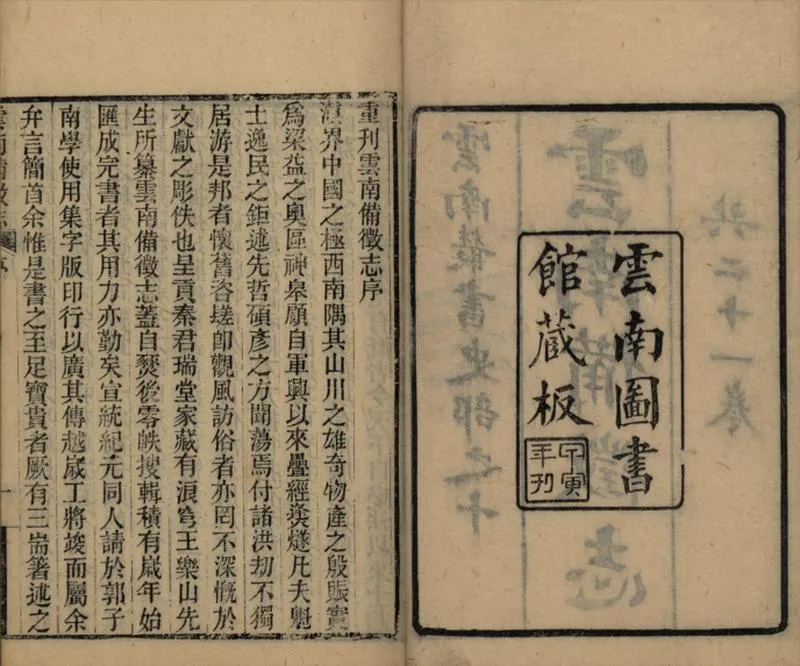 雲南圖書
館藏板
甲寅
年刊
共二十一卷
雲南備徵志
雲南叢書史部之十
重刊雲南備徵志序
滇界中國之極西南隅其山川之雄奇物產之殷賑實
爲梁益之奧區神皋顧自軍興以來疊經燹燧凡夫魁
士逸民之鉅述先哲碩彥之方聞蕩焉付諸洪刧不獨
居游是邦者懷舊咨嗟卽觀風訪俗者亦罔不深慨於
文獻之彫佚也呈貢秦君瑞堂家藏有浪穹王樂山先
生所纂雲南備徵志蓋自燹後零帙搜輯積有歲年始
匯成完書者其用力亦勤矣宣統紀元同人請於郭子
南學使用集字版印行以廣其傳越歲工將竣而屬余
弁言簡首余惟是書之至足寶貴者厥有三耑箸述之
雲南備徵志 序 一